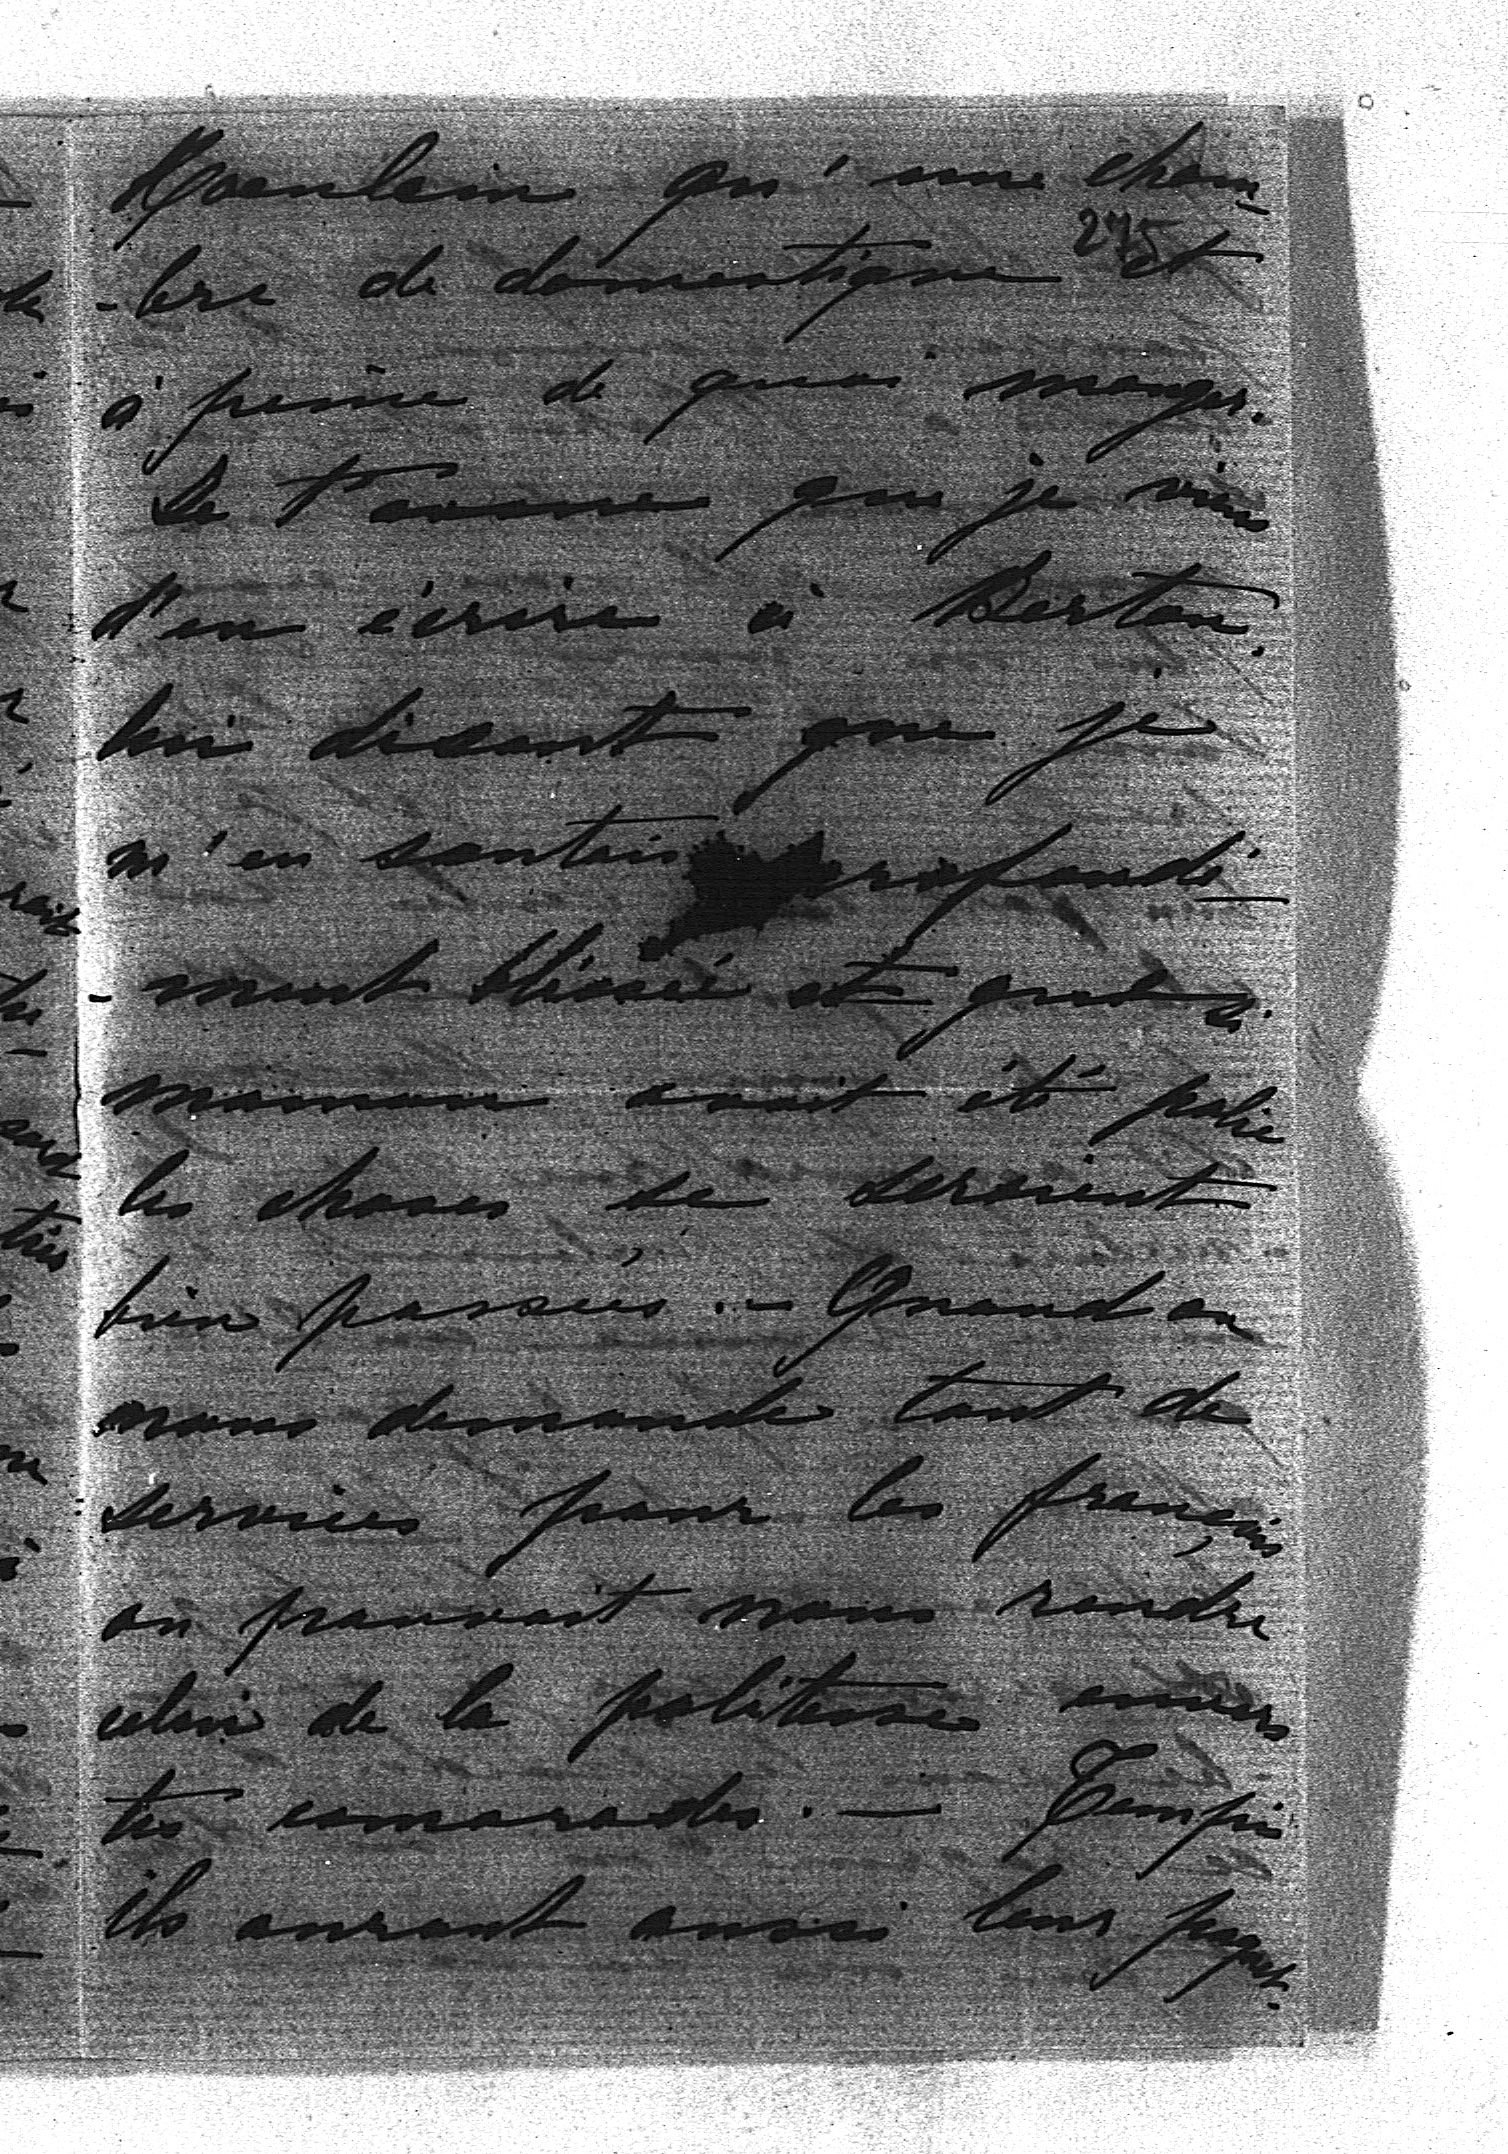 qu'une cham-
275
-bre de domestique et
à peine de quoi manger.
Je t'avoue que je viens
d'en écrire à Berton
lui disant que je
m'en sentais profondé-
-ment blessé et que si
maman avait été polie
les choses se seraient
bien passées. — Quand on
nous demande tant de
services pour les français
on pouvait nous rendre
celui de la politesse envers
tes camarades. — Tempis
ils auront aussi leur paquet.